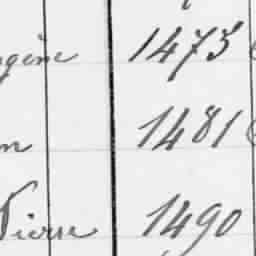 gène 1473
n 1481
Pierre 1490